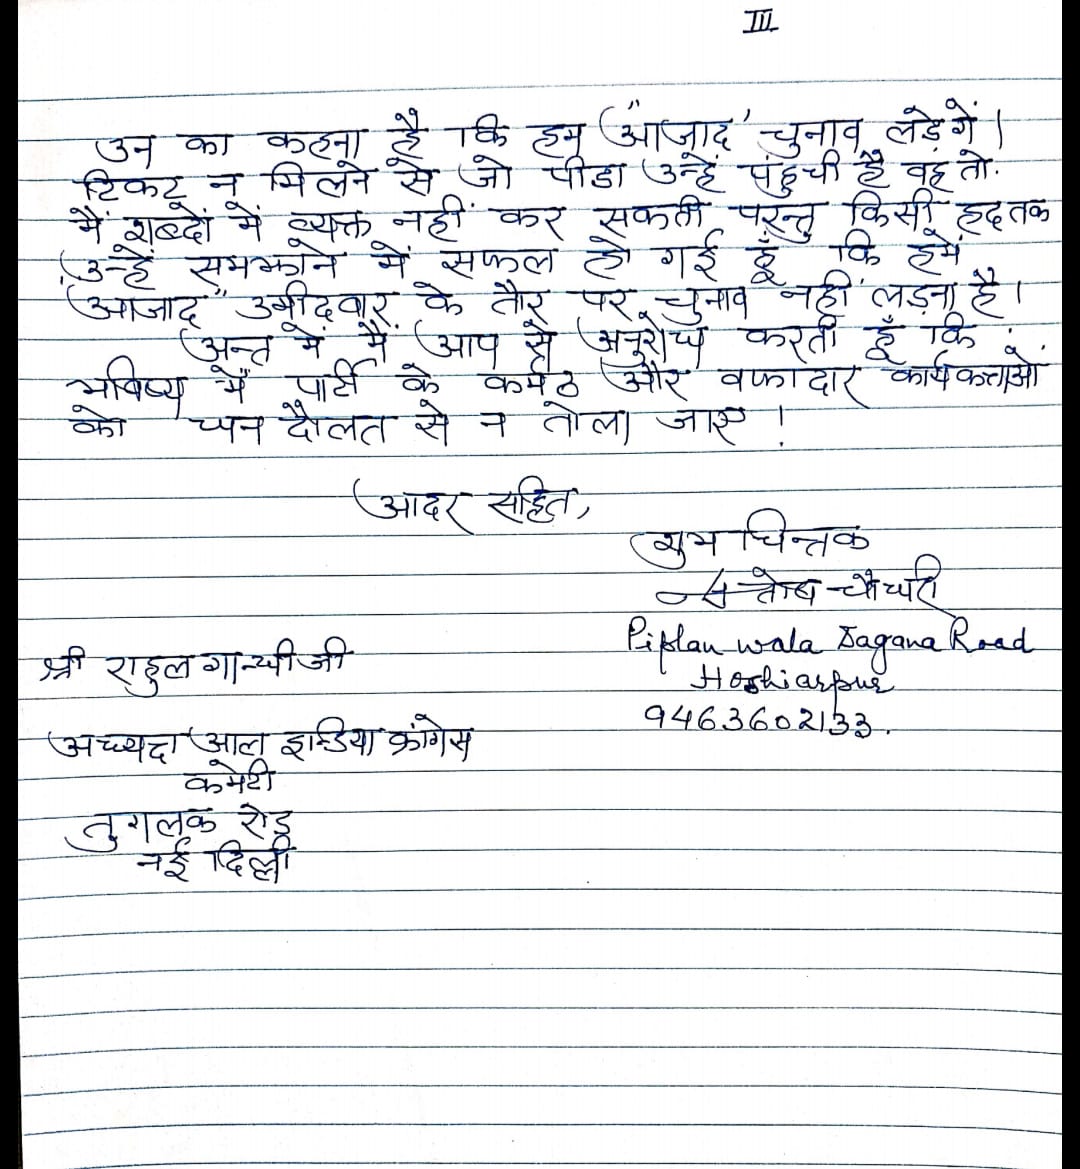 III
उन का कहना है कि हम "आज़ाद' चुनाव लड़ेगें।
टिकट न मिलने से जो पीडा उन्हें पंहुची है वह तो.
मैं शब्दों में व्यक्त नहीं कर सकती परन्तु किसी हद तक
उन्हें समझाने में सफल हो गई हूँ कि हमें
आजाद" उमीदवार के तौर पर चुनाव नहीं लड़ना है।
अन्त में मैं आप से अनुरोध करती हूँ कि
भविष्य में पार्टी के कर्मठ और वफादार कार्यकर्त्ताओं
को धन दौलत से न तोला जाए!
आदर सहित,
शुभ चिन्तक
सन्तोष चौधरी
Piplan wala Jagana Road
Hoshiarpur
9463602133.
श्री राहुल गान्धी जी
अध्यक्ष आल इन्डिया कांग्रेस
कमेटी
तुगलक रोड़
नई दिल्ली